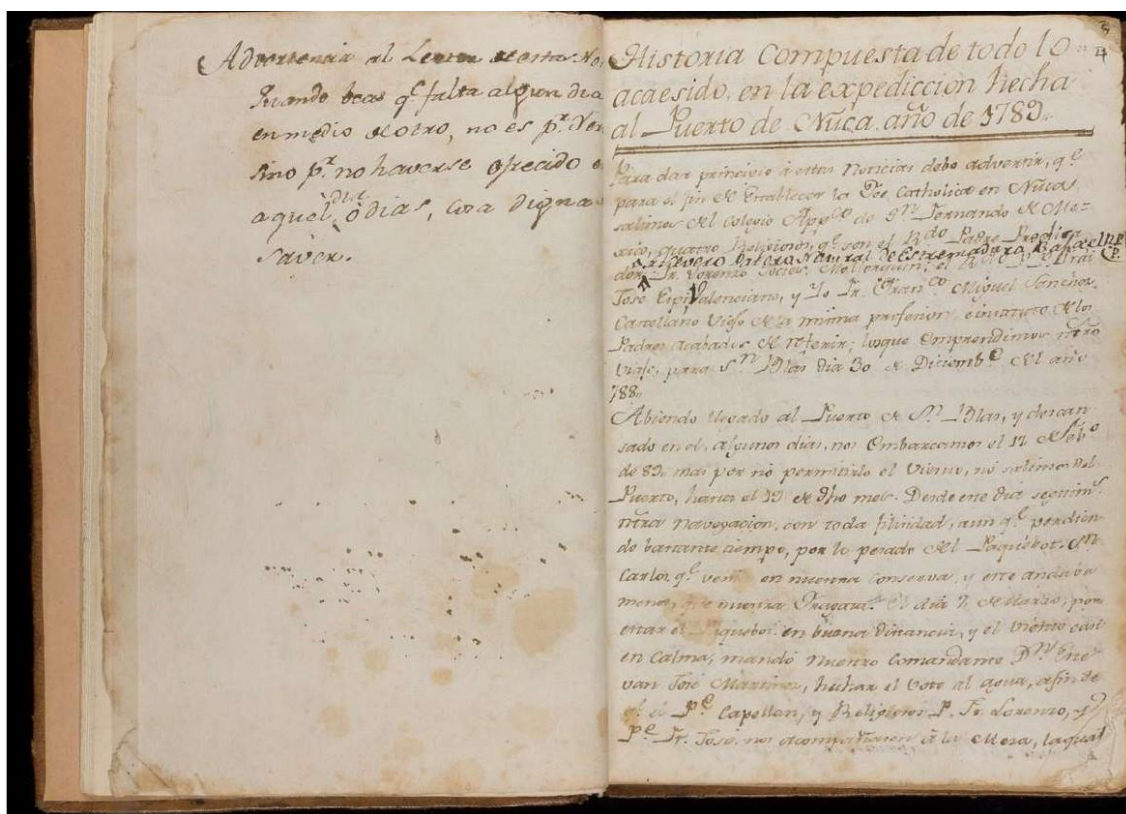 Advertencia al Letor de esta No
Quando beas q.e falta algun dia
en medio de otro, no es p.r
sino p.r no haverse ofrecido
aquel dia, ò dias, cosa digna
saver.
Historia Compuesta de todo lo
acaesido, en la èxpedicción hecha
al Puerto de Nuca. año de 1789..
Para dar principio à estas Noticias debo advertir, q.e
para el fin de Establecer la Fee Catholica en Nuca,
salimos del Colegio App.co de S.n Fernando de Me=
xico, quatro Religiosos, q.e son el R.do Padre Predica
Fr. Severo Patero Natural de Estremadura
dor Fr. Lorenzo Socies, Mallorquin; el
José Espi Valenciano, y Yo Fr. Fran.co Miguel Sanchez,
Castellano Viejo de la misma profesion, è instituto de los
Padres acabados de referir; los que Emprendimos ntro
viaje, para S.n Blas dia 30 de Diciemb.e del año
788..
Abiendo llegado al Puerto de S.n Blas, y descan
sado en el, algunos dias, nos Embarcamos el 17 de Feb.o
de 89. mas por no permitirlo el Viento, no salimos del
Puerto, hasta el 19 de dho mes. Desde este dia seguim.s
ntra navegacion, con toda felicidad, aun q.e perdien
do bastante tiempo, por lo pesado del Paquebot, S.n
Carlos, q.e venia en nuestra Conserva, y este andaba
menos, que nuestra Fragata. El dia 7 de Marzo, por
estar el Paquebot en buena distancia, y el viento casi
en Calma, mandó nuestro Comandante D.n Este
van José Martinez, hechar el Vote al agua, afin de
q.e el P.e Capellan, y Religiosos P. Fr. Lorenzo, y
P.e Fr. José, nos acompañasen à la Mesa, la qual